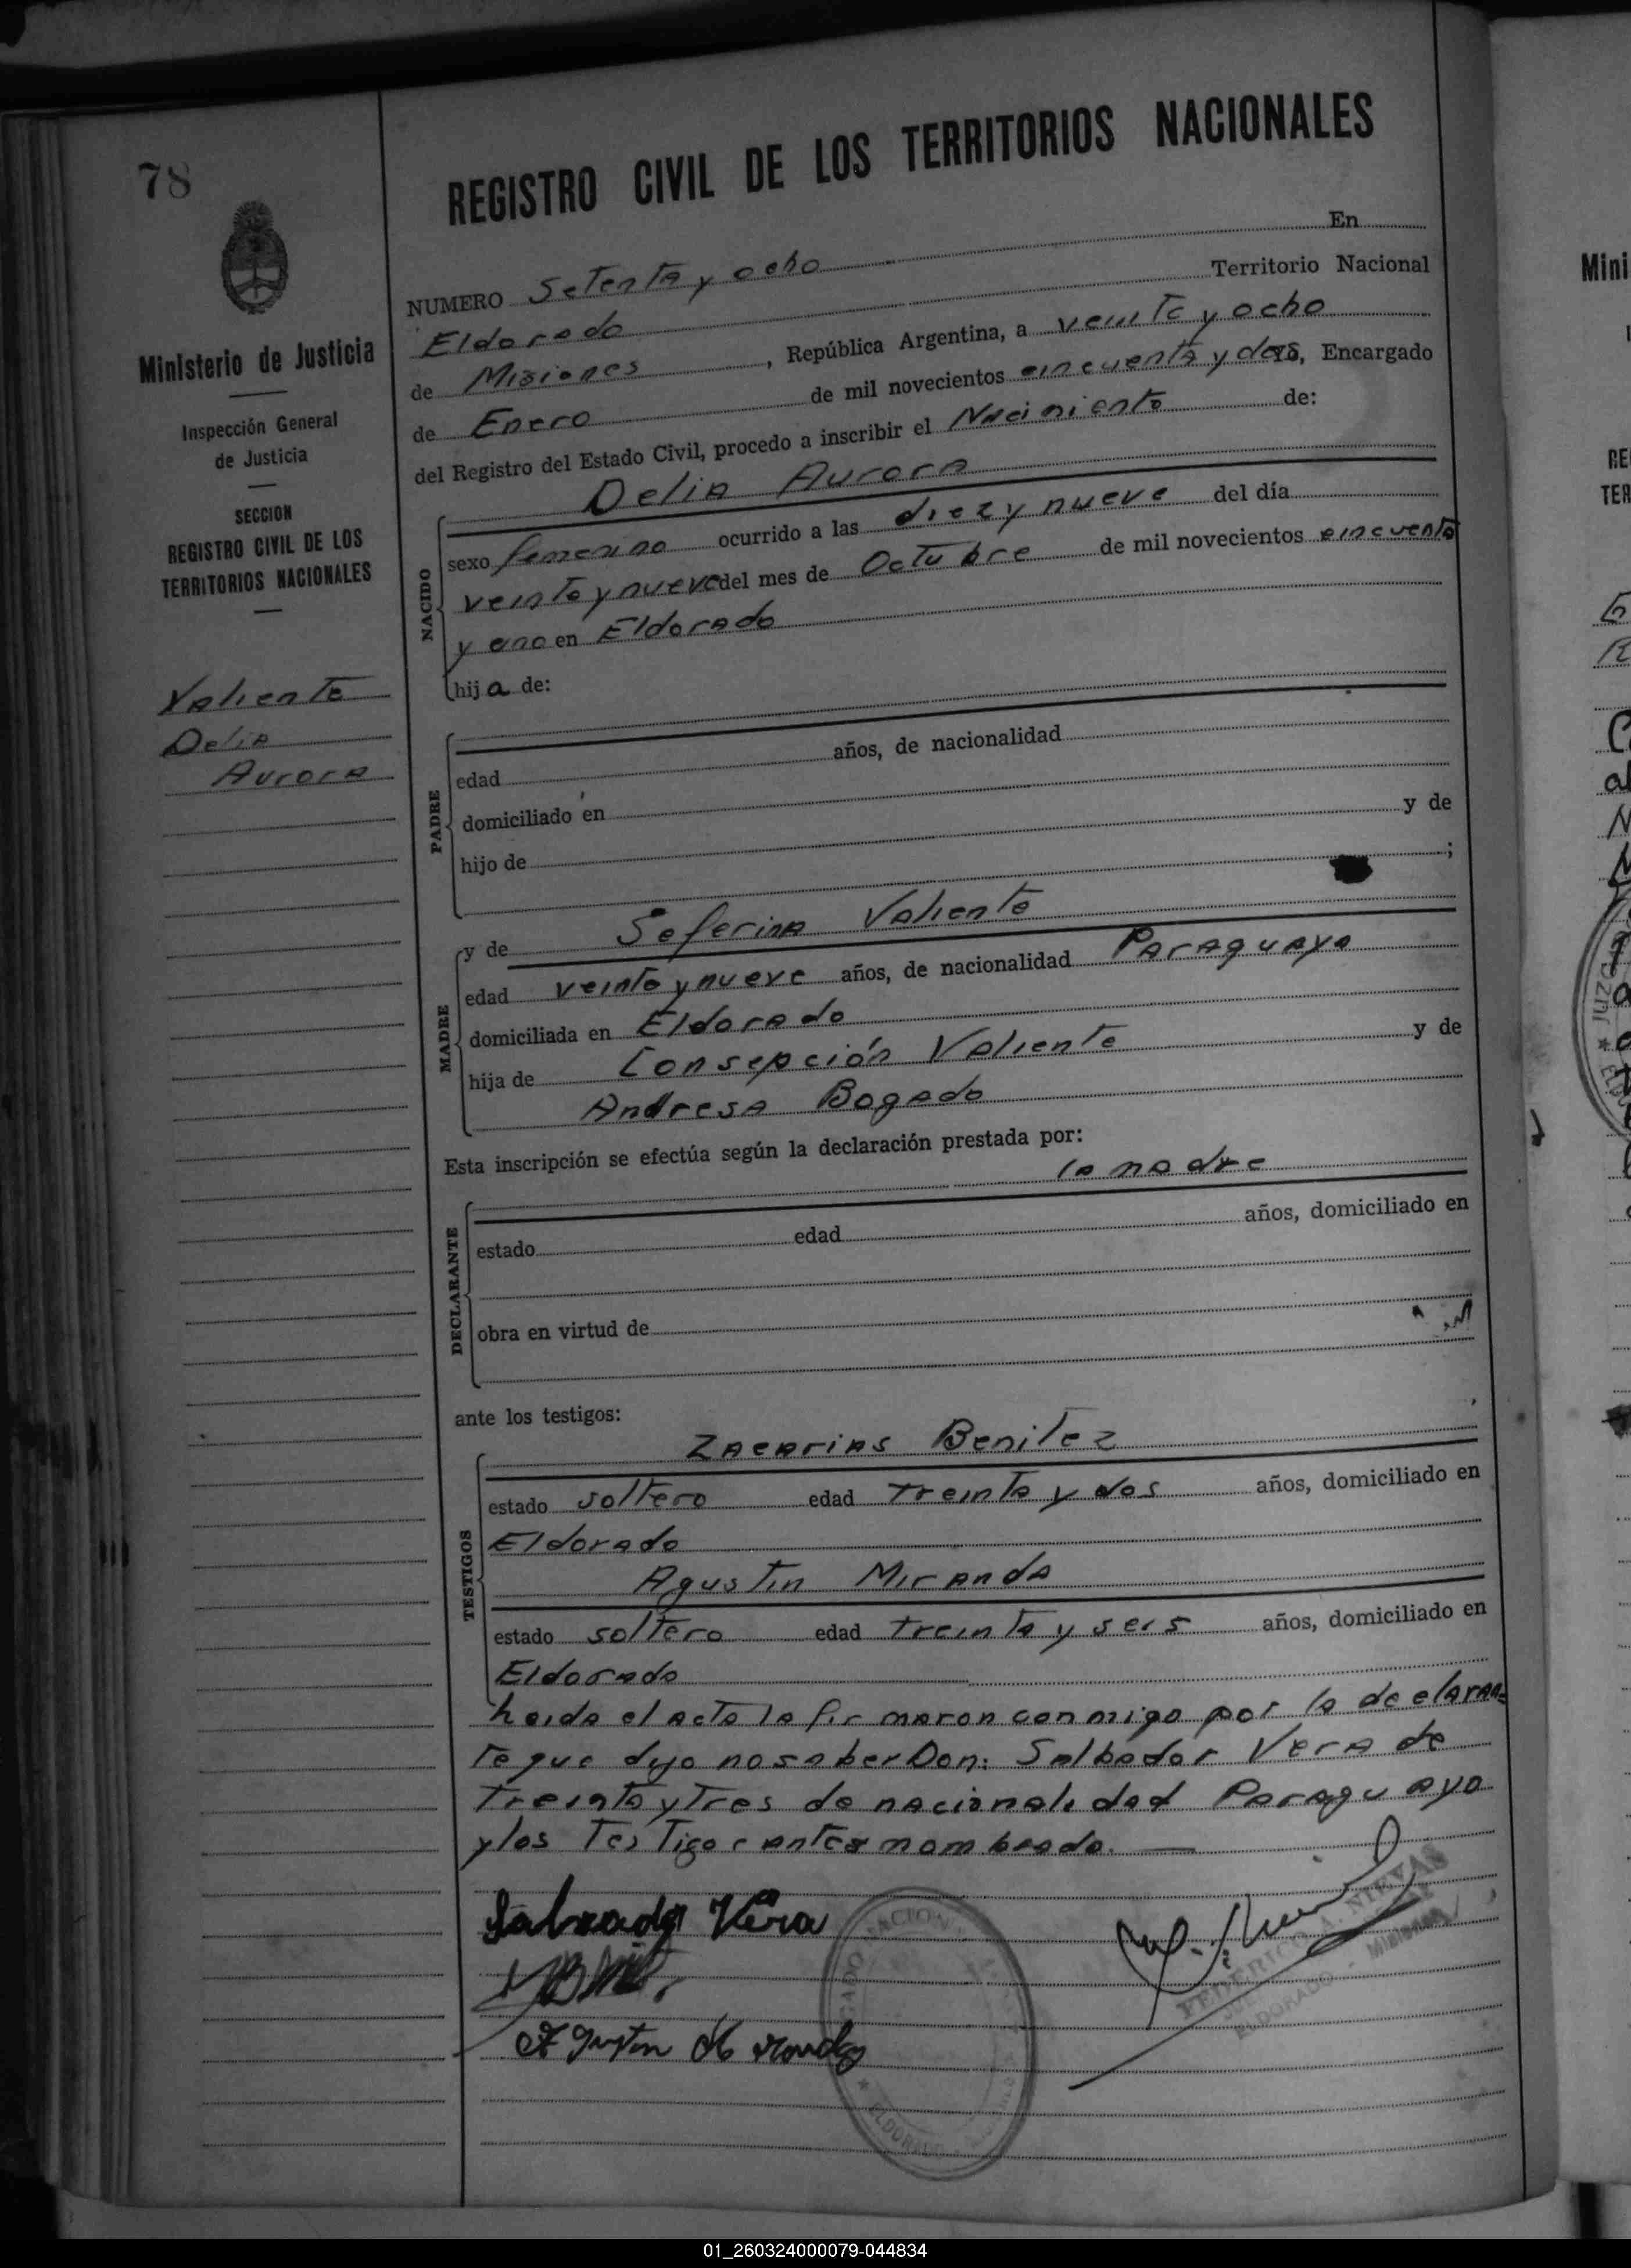 78
REGISTRO CIVIL DE LOS TERRITORIOS NACIONALES
En
NUMERO Setenta y ocho
Eldorado Territorio Nacional
de Misiones, República Argentina, a veinte y ocho
de Enero de mil novecientos cincuenta y dos, Encargado
del Registro del Estado Civil, procedo a inscribir el Nacimiento de:
Ministerio de Justicia
Inspección General
de Justicia
SECCION
REGISTRO CIVIL DE LOS
TERRITORIOS NACIONALES
Valiente
Delia
Aurora
NACIDO
Delia Aurora
sexo femenino ocurrido a las diez y nueve del día
veinte y nueve del mes de Octubre de mil novecientos cincuenta
y uno en Eldorado
hija de:
PADRE
edad años, de nacionalidad
domiciliado en
hijo de y de
;
MADRE
y de Seferina Valiente
edad veinte y nueve años, de nacionalidad Paraguaya
domiciliada en Eldorado
hija de Consepción Valiente y de
Andresa Bogado
Esta inscripción se efectúa según la declaración prestada por:
la madre
DECLARANTE
estado edad años, domiciliado en
obra en virtud de
ante los testigos:
TESTIGOS
Zacarias Benitez
estado soltero edad treinta y dos años, domiciliado en
Eldorado
Agustin Miranda
estado soltero edad treinta y seis años, domiciliado en
Eldorado
heida el acta la firmaron conmigo por la declaran=
te que dijo no saber Don: Salbador Vera de
treinta y tres de nacionalidad Paraguayo
y los Testigos antes nombrado.
Salvador Vera
Agustin Miranda
FEDERICO A. NIEVAS
ELDORADO - Misiones
ELDORADO
Mini
RE
TER
01_260324000079-044834